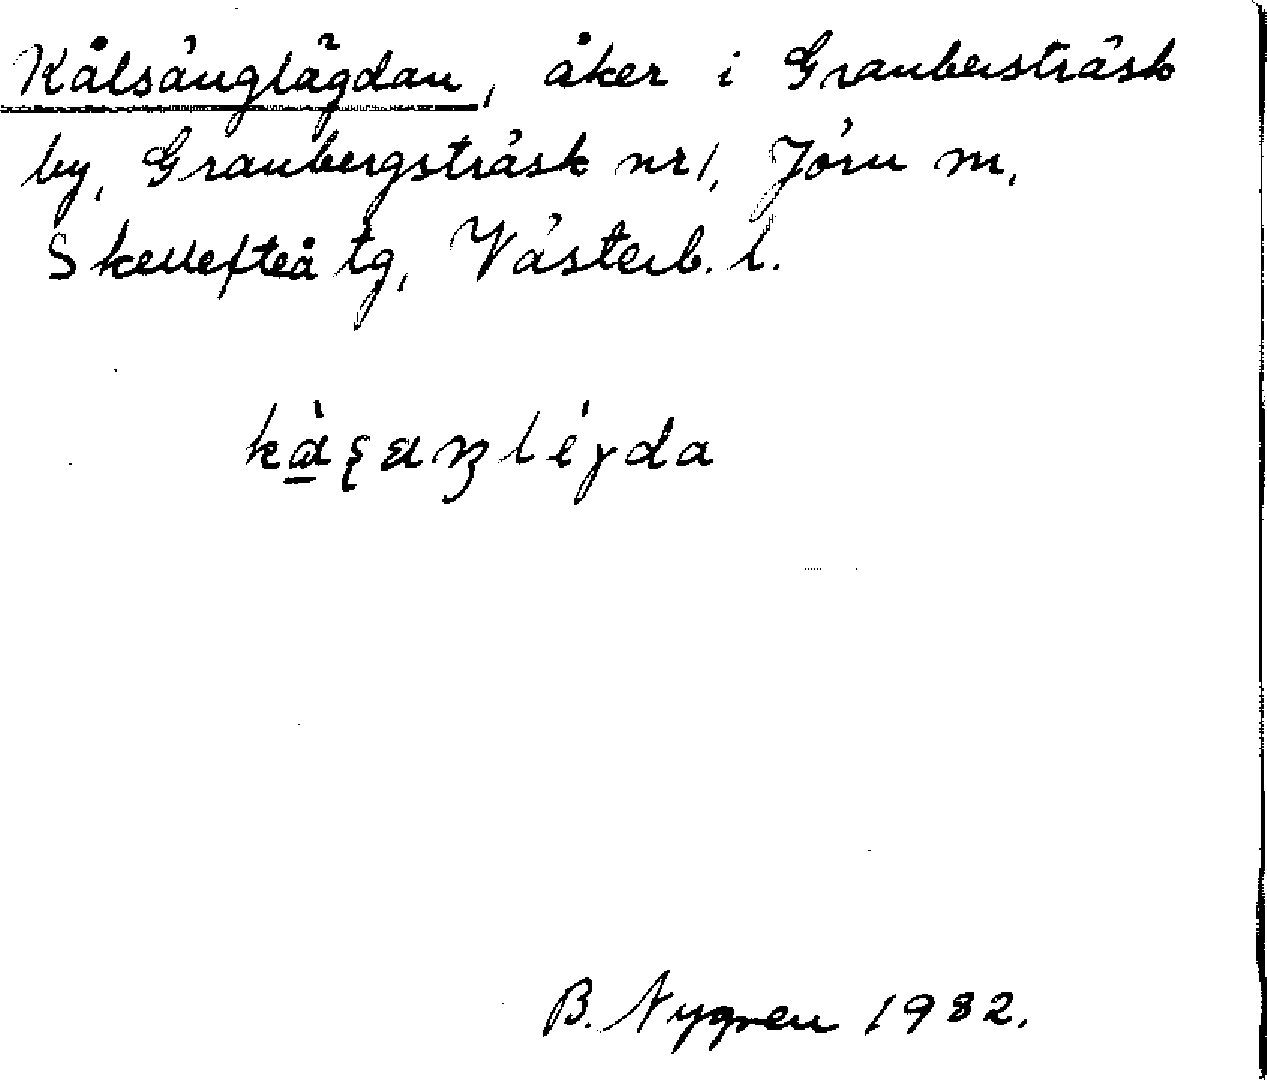 Kålsänglägdan, åker i Granbersträsk
by, Granbergsträsk nr 1, Jörn sn,
Skellefteå tg, Västerb. l.
B. Nygren 1982.